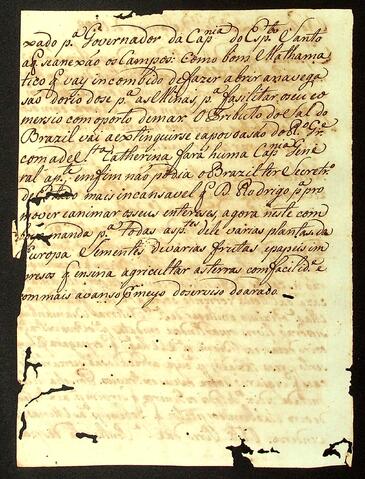 xado p.ª Governador da Cap.nia do Esp.to Santo
aq se anexão os Campos: como bom Mathama
tico q̃ vay incombido de fazer abrir a navega
são do rio dose p.ª as Minas, p.ª fasilitar o seu co
mersio com o porto de mar. O Tributo do Sal do
Brazil vai a extinguirse e a povoasão do R.º Gr.e
com a de S.ta Catherina fará huma Cap.nia Gene
ral ap.te emfim não podia o Brazil ter Secretr.º
de mais incansavel q̃ D. Rodrigo p.ª pro
mover e animar os seus enteresses, agora neste com
manda p.ª todas as p.tes dele varias plantas da
Europa e Sementes de varias frutas e papeis im
presos q̃ ensina agricultar as terras com facilid.e e
com mais avanso p̃ meyo do serviso do arado.